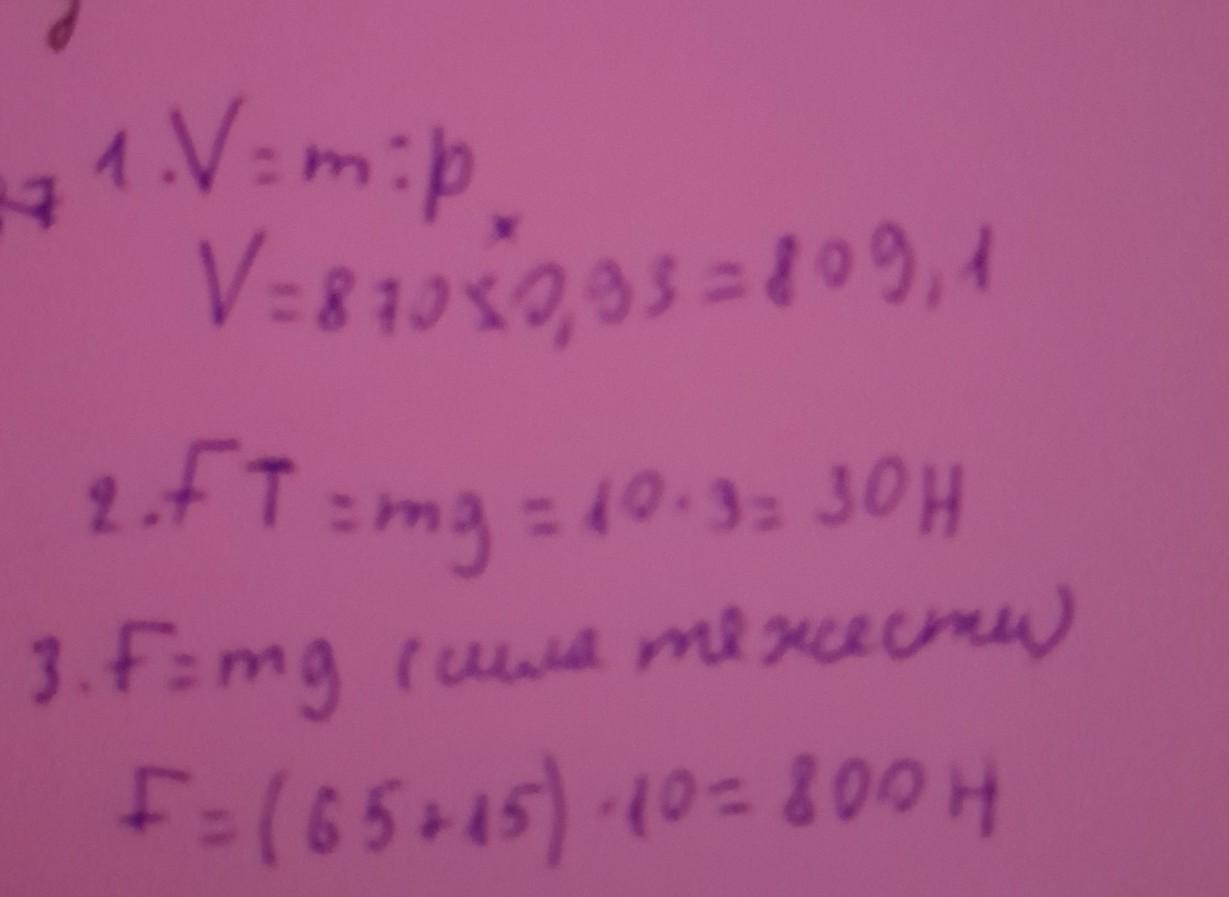 1. V = m : p
V = 870 × 0,93 = 809,1
2. FT = mg = 10 · 3 = 30 H
3. F = mg (сила тяжести)
F = (65 + 15) · 10 = 800 H